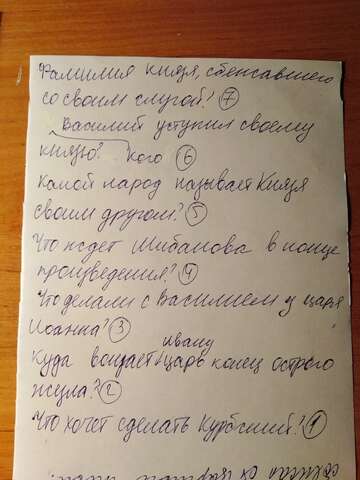 Фамилия князя, сбежавшего
со своим слугой? 7
Василий уступил своему
князю? кого 6
Какой народ называет Князя
своим другом? 5
Что ждет Шибанова в конце
произведения? 4
Что делали с Василием у царя
Иоанна? 3
ивану
Куда вонзает царь конец острого
жезла? 2
Что хочет сделать Курбский? 1